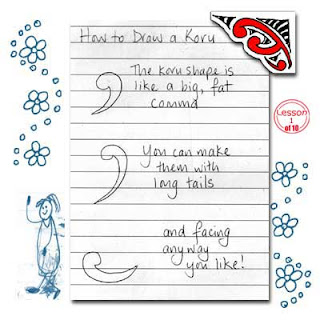 How to Draw a Koru
The koru shape is
like a big, fat
comma
You can make
them with
long tails
and facing
anyway
you like!
Lesson
1
of 10